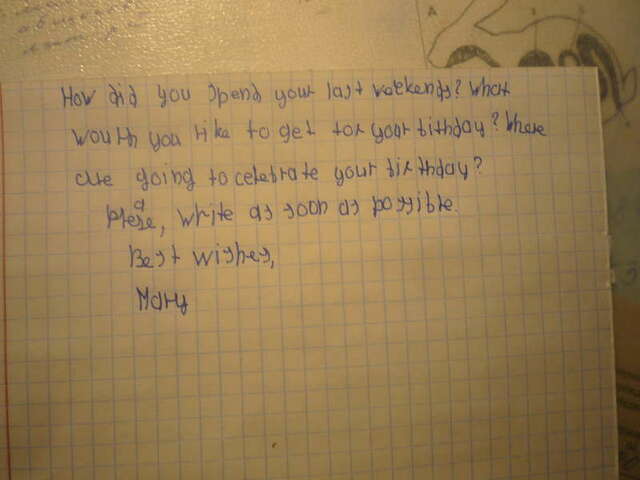 How did you spend your last weekends? What
would you like to get for your bithday? Where
are going to celebrate your birthday?
Please, write as soon as possible.
Best wishes,
Mary
A